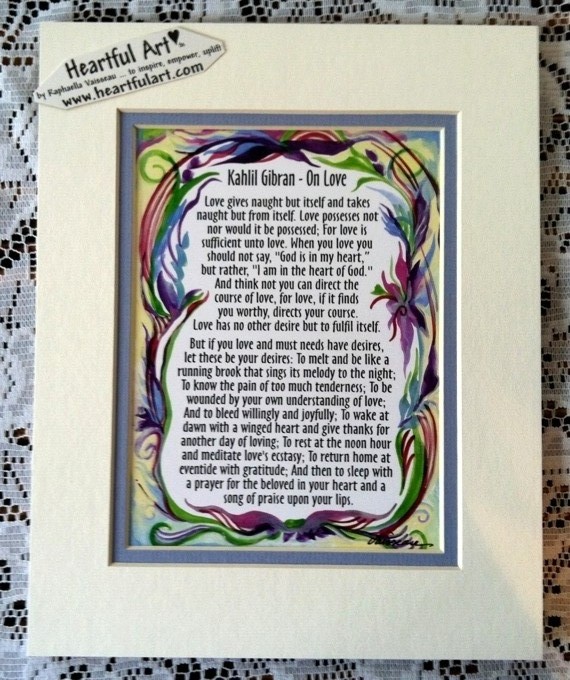 Heartful Art™
by Raphaella Vaisseau ... to inspire, empower, uplift
www.heartfulart.com
Kahlil Gibran - On Love
Love gives naught but itself and takes
naught but from itself. Love possesses not
nor would it be possessed; For love is
sufficient unto love. When you love you
should not say, "God is in my heart,"
but rather, "I am in the heart of God."
And think not you can direct the
course of love, for love, if it finds
you worthy, directs your course.
Love has no other desire but to fulfil itself.
But if you love and must needs have desires,
let these be your desires: To melt and be like a
running brook that sings its melody to the night;
To know the pain of too much tenderness; To be
wounded by your own understanding of love;
And to bleed willingly and joyfully; To wake at
dawn with a winged heart and give thanks for
another day of loving; To rest at the noon hour
and meditate love's ecstasy; To return home at
eventide with gratitude; And then to sleep with
a prayer for the beloved in your heart and a
song of praise upon your lips.